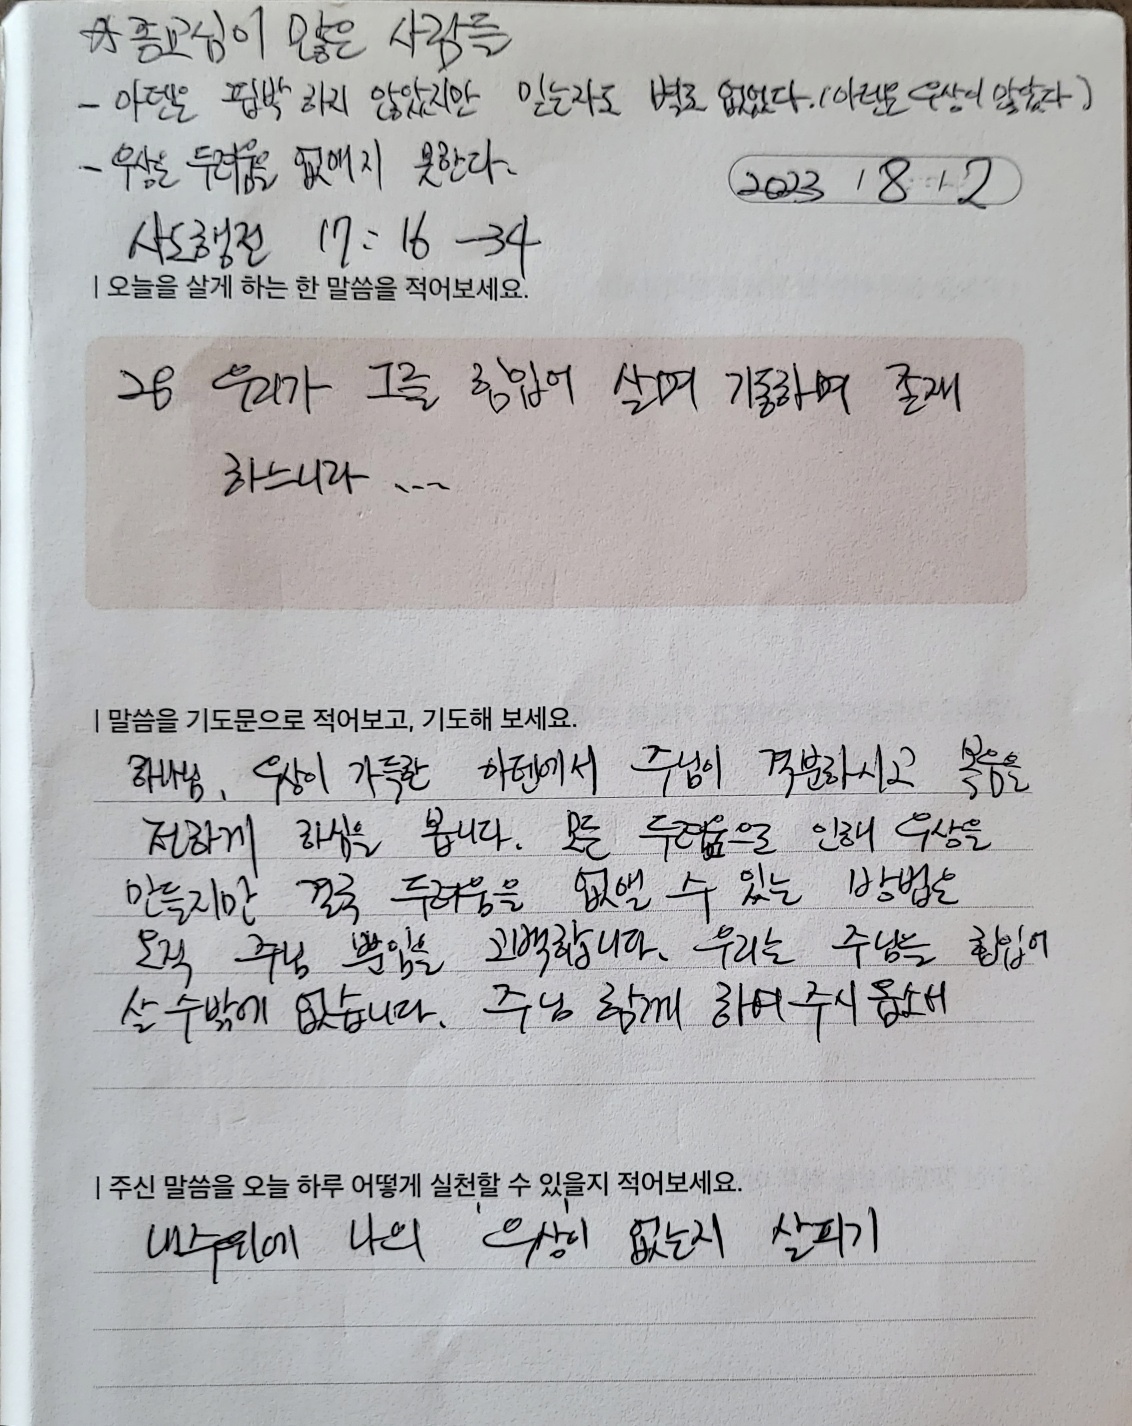 ☆ 종교심이 많은 사람들
- 아덴은 핍박 하지 않았지만 믿는자도 별로 없었다. (아덴은 우상이 많았다)
- 우상은 두려움을 없애지 못한다.
2023 . 8 . 2
사도행전 17: 16 - 34
| 오늘을 살게 하는 한 말씀을 적어보세요.
28 우리가 그를 힘입어 살며 기동하며 존재
하느니라 ...
| 말씀을 기도문으로 적어보고, 기도해 보세요.
하나님, 우상이 가득한 아덴에서 주님이 격분하시고 복음을
전하게 하심을 봅니다. 모든 두려움으로 인해 우상을
만들지만 결국 두려움을 없앨 수 있는 방법은
오직 주님 뿐임을 고백합니다. 우리는 주님을 힘입어
살 수밖에 없습니다. 주님 함께 하여 주시옵소서
| 주신 말씀을 오늘 하루 어떻게 실천할 수 있을지 적어보세요.
내주위에 나의 '우상'이 없는지 살피기